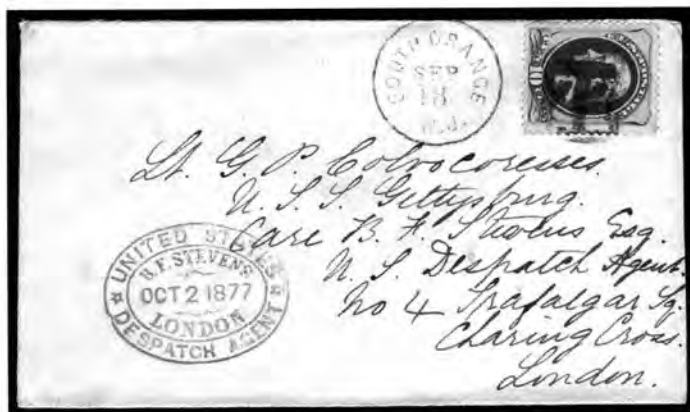 SOUTH ORANGE
SEP
18
N.J.
10
Lt. G. P. Colvocoresses.
U. S. S. Gettysburg.
Care B. F. Stevens Esq.
U. S. Despatch Agent.
No 4 Trafalgar Sq.
Charing Cross.
London.
UNITED STATES
B.F. STEVENS
OCT 2 1877
LONDON
DESPATCH AGENT